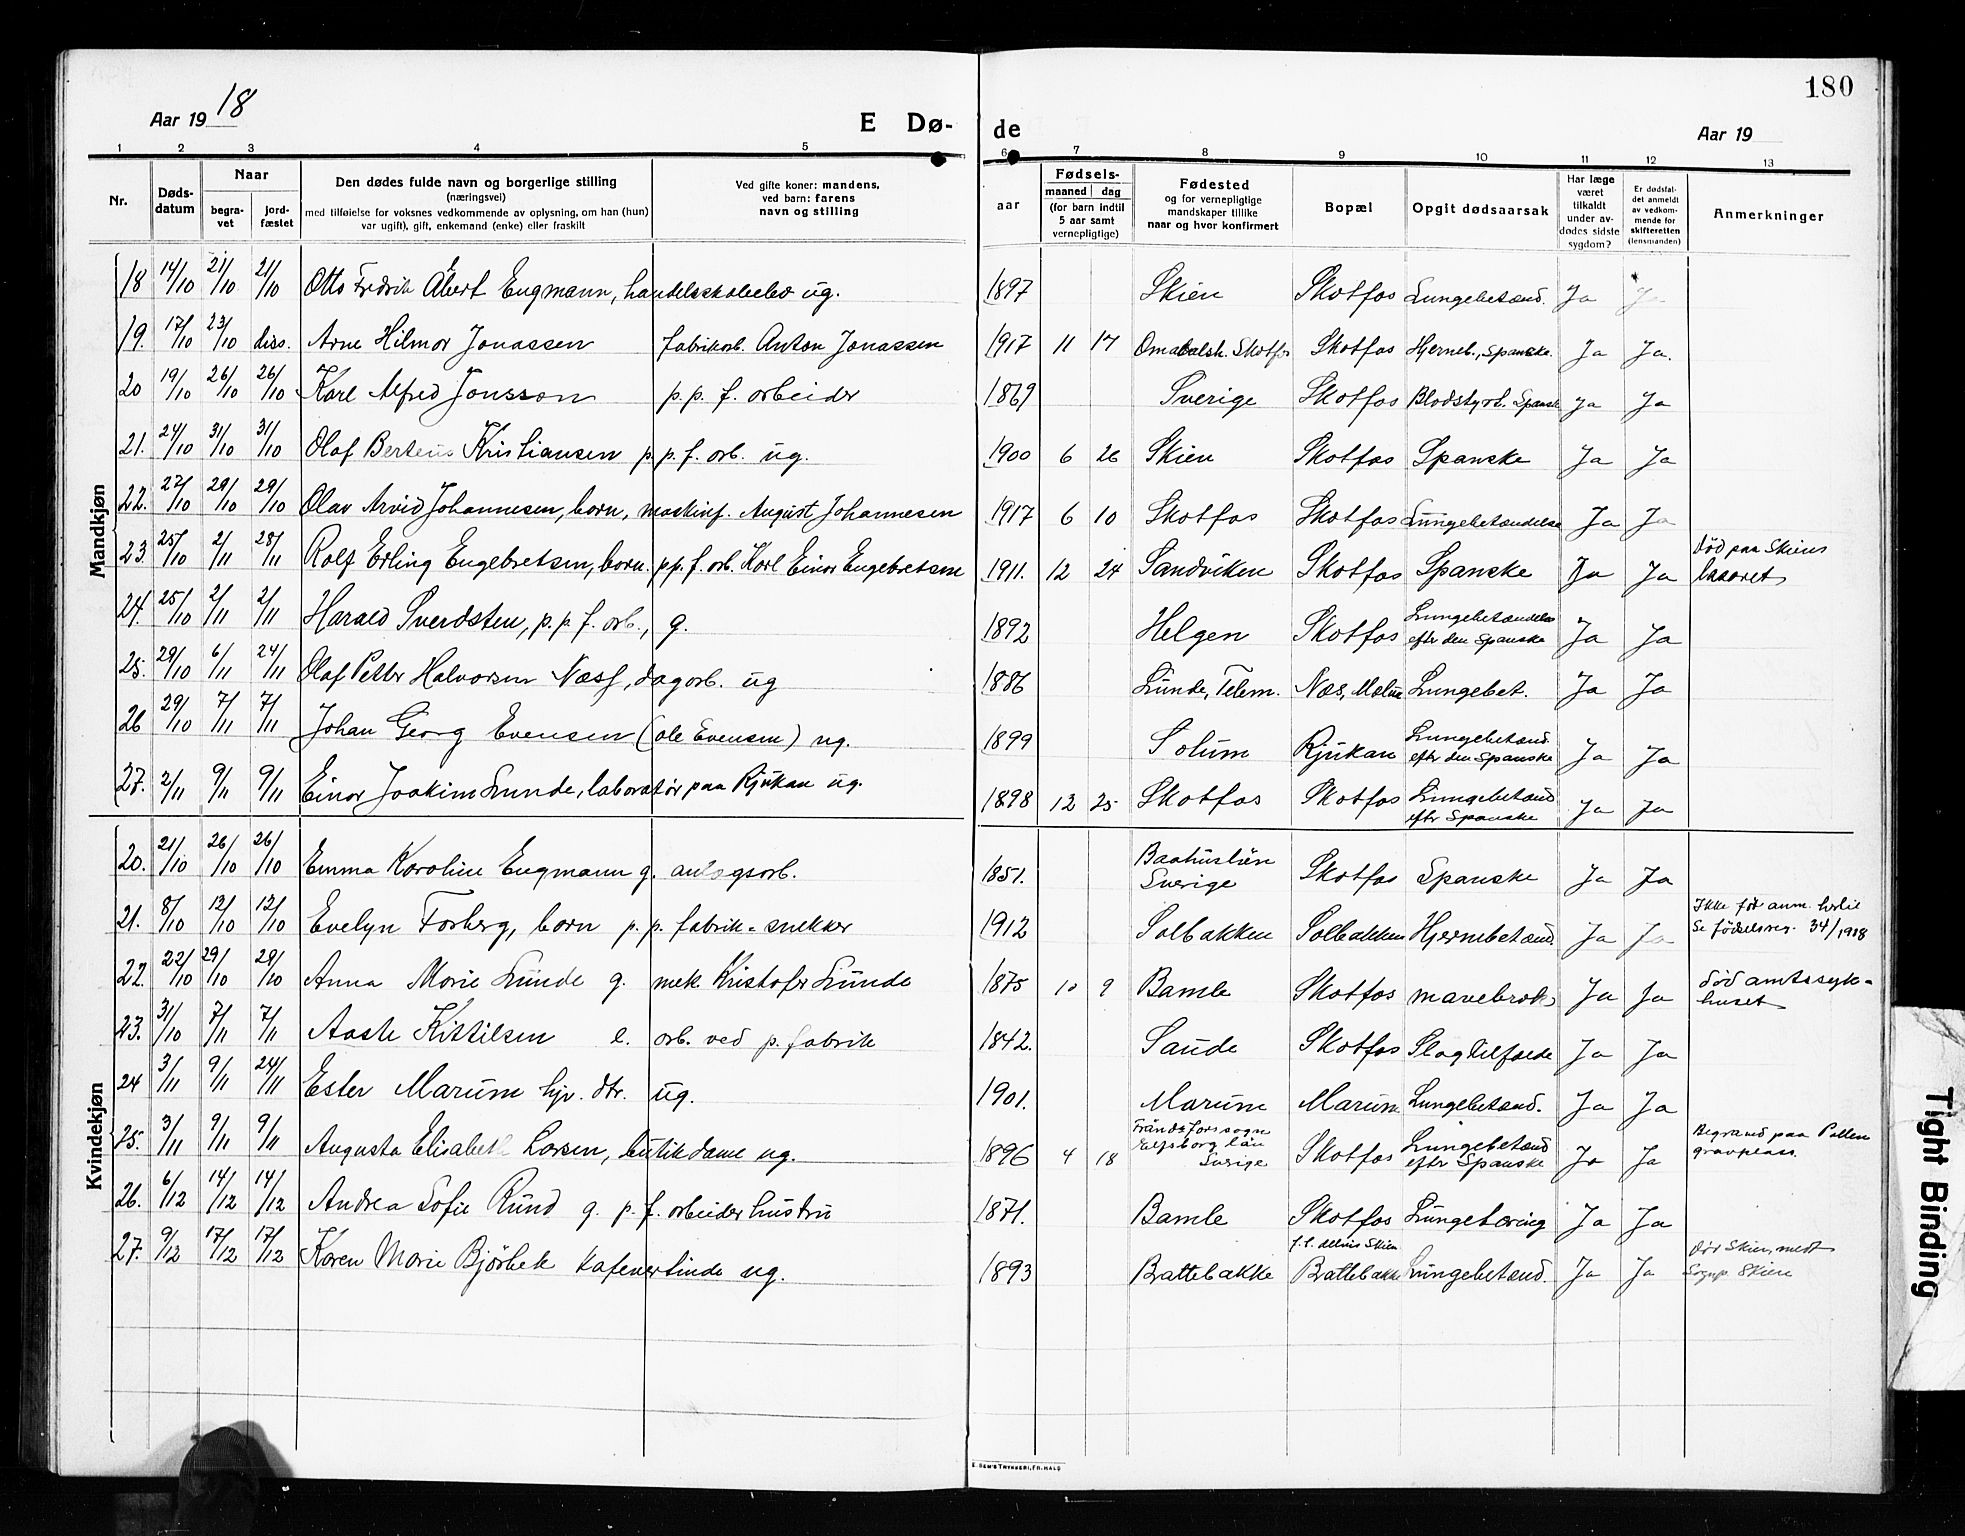 180
Aar 1918
E Dø-
de
Aar 19
1 2 3 4 5 6 7 8 9 10 11 12 13
Nr.
Døds-
datum
Naar
begra-
vet
jord-
fæstet
Den dødes fulde navn og borgerlige stilling
(næringsvei)
med tilføielse for voksnes vedkommende av oplysning, om han (hun)
var ugift), gift, enkemand (enke) eller fraskilt
Ved gifte koner: mandens,
ved barn: farens
navn og stilling
aar
Fødsels-
maaned dag
(for barn indtil
5 aar samt
vernepligtige)
Fødested
og for vernepligtige
mandskaper tillike
naar og hvor konfirmert
Bopæl
Opgit dødsaarsak
Har læge
været
tilkaldt
under av-
dødes sidste
sygdom?
Er dødsfal-
det anmeldt
av vedkom-
mende for
skifteretten
(lensmanden)
Anmerkninger
Mandkjøn
18 14/10 21/10 21/10 Otto Fredrik Albert Engmann, handelsskoleelev ug. 1897 Skien Skotfos Lungebetænd. Ja Ja
19. 17/10 23/10 diss. Arne Hilmar Jonassen fabrikarb. Anton Jonassen 1917 11 17 Skotfos Skotfos Hjerneb., Spanske. Ja Ja.
20 19/10 26/10 26/10 Karl Alfred Jonsson p.p. f. arbeider 1869 Sverige Skotfos Blodstyrt. Spanske Ja Ja
21. 24/10 31/10 31/10 Olaf Bertens Kristiansen p.p. f. arb. ug. 1900 6 26 Skien Skotfos Spanske Ja Ja
22. 27/10 29/10 29/10 Olav Arvid Johannesen, barn, maskinf. August Johannesen 1917 6 10 Skotfos Skotfos Lungebetændelse Ja Ja
23 25/10 2/11 28/11 Rolf Erling Engebretsen, barn. pp. f. arb. Karl Einar Engebretsen 1911. 12 24 Sandviken Skotfos Spanske Ja Ja Død paa Skiens
lasaret
24. 25/10 2/11 2/11 Harald Sverdsten, p.p. f. arb., g. 1892 Helgen Skotfos Lungebetændelse
efter den Spanske Ja Ja
25. 29/10 6/11 24/11 Olaf Petter Halvorsen Næss, dagarb. ug 1886 Lunde, Telem. Næs, Melum Lungebet. Ja Ja
26 29/10 7/11 7/11 Johan Georg Evensen (Ole Evensen) ug. 1899 Solum Rjukan Lungebetænd.
efter den Spanske Ja Ja
27. 2/11 9/11 9/11 Einar Joakim Lunde, laboratør paa Rjukan ug. 1898 12 25 Skotfos Skotfos Lungebetænd
eftr Spanske Ja Ja
Kvindekjøn
20. 21/10 26/10 26/10 Emma Karoline Engmann g. anlægsarb. 1851. Baahuslän
Sverige Skotfos Spanske Ja Ja
21. 8/10 12/10 12/10 Evelyn Forberg, barn p.p. fabrik-snekker 1912 Solbakken Solbakken Hjernebetænd. Ja Ja Ikke før anm. hertil
Se fødselsreg. 34/1918
22. 22/10 29/10 29/10 Anna Marie Lunde g. mek. Kristofer Lunde 1875 10 9 Bamle Skotfos mavebrok Ja Ja død amtssyk-
huset
23. 31/10 7/11 7/11 Aaste Kittilsen e. arb. ved p. fabrik 1842. Saude Skotfos Slagtilfælde Ja Ja
24 3/11 9/11 24/11 Ester Marum hjv. dtr. ug. 1901. Marum Marum Lungebetænd. Ja Ja
25. 3/11 9/11 9/11 Augusta Elisabeth Larsen, butikdame ug. 1896 4 18 Frändefors sogn
Elfsborg län
Sverige Skotfos Lungebetænd
efter Spanske Ja Ja Begravd paa Pollen
gravplass.
26. 6/12 14/12 14/12 Andrea Sofie Rund g. p. f. arbeider hustru 1871. Bamle Skotfos Lungetæring Ja Ja
27. 9/12 17/12 17/12 Karen Marie Bjørbek kafevertinde ug. 1893 Brattebakke f.t. delvis Skien
Brattebakke Lungebetænd. Ja Ja død Skien, medt
Sognp. Skien
E. SEM'S TRYKKERI, FR.HALD
Tight Binding